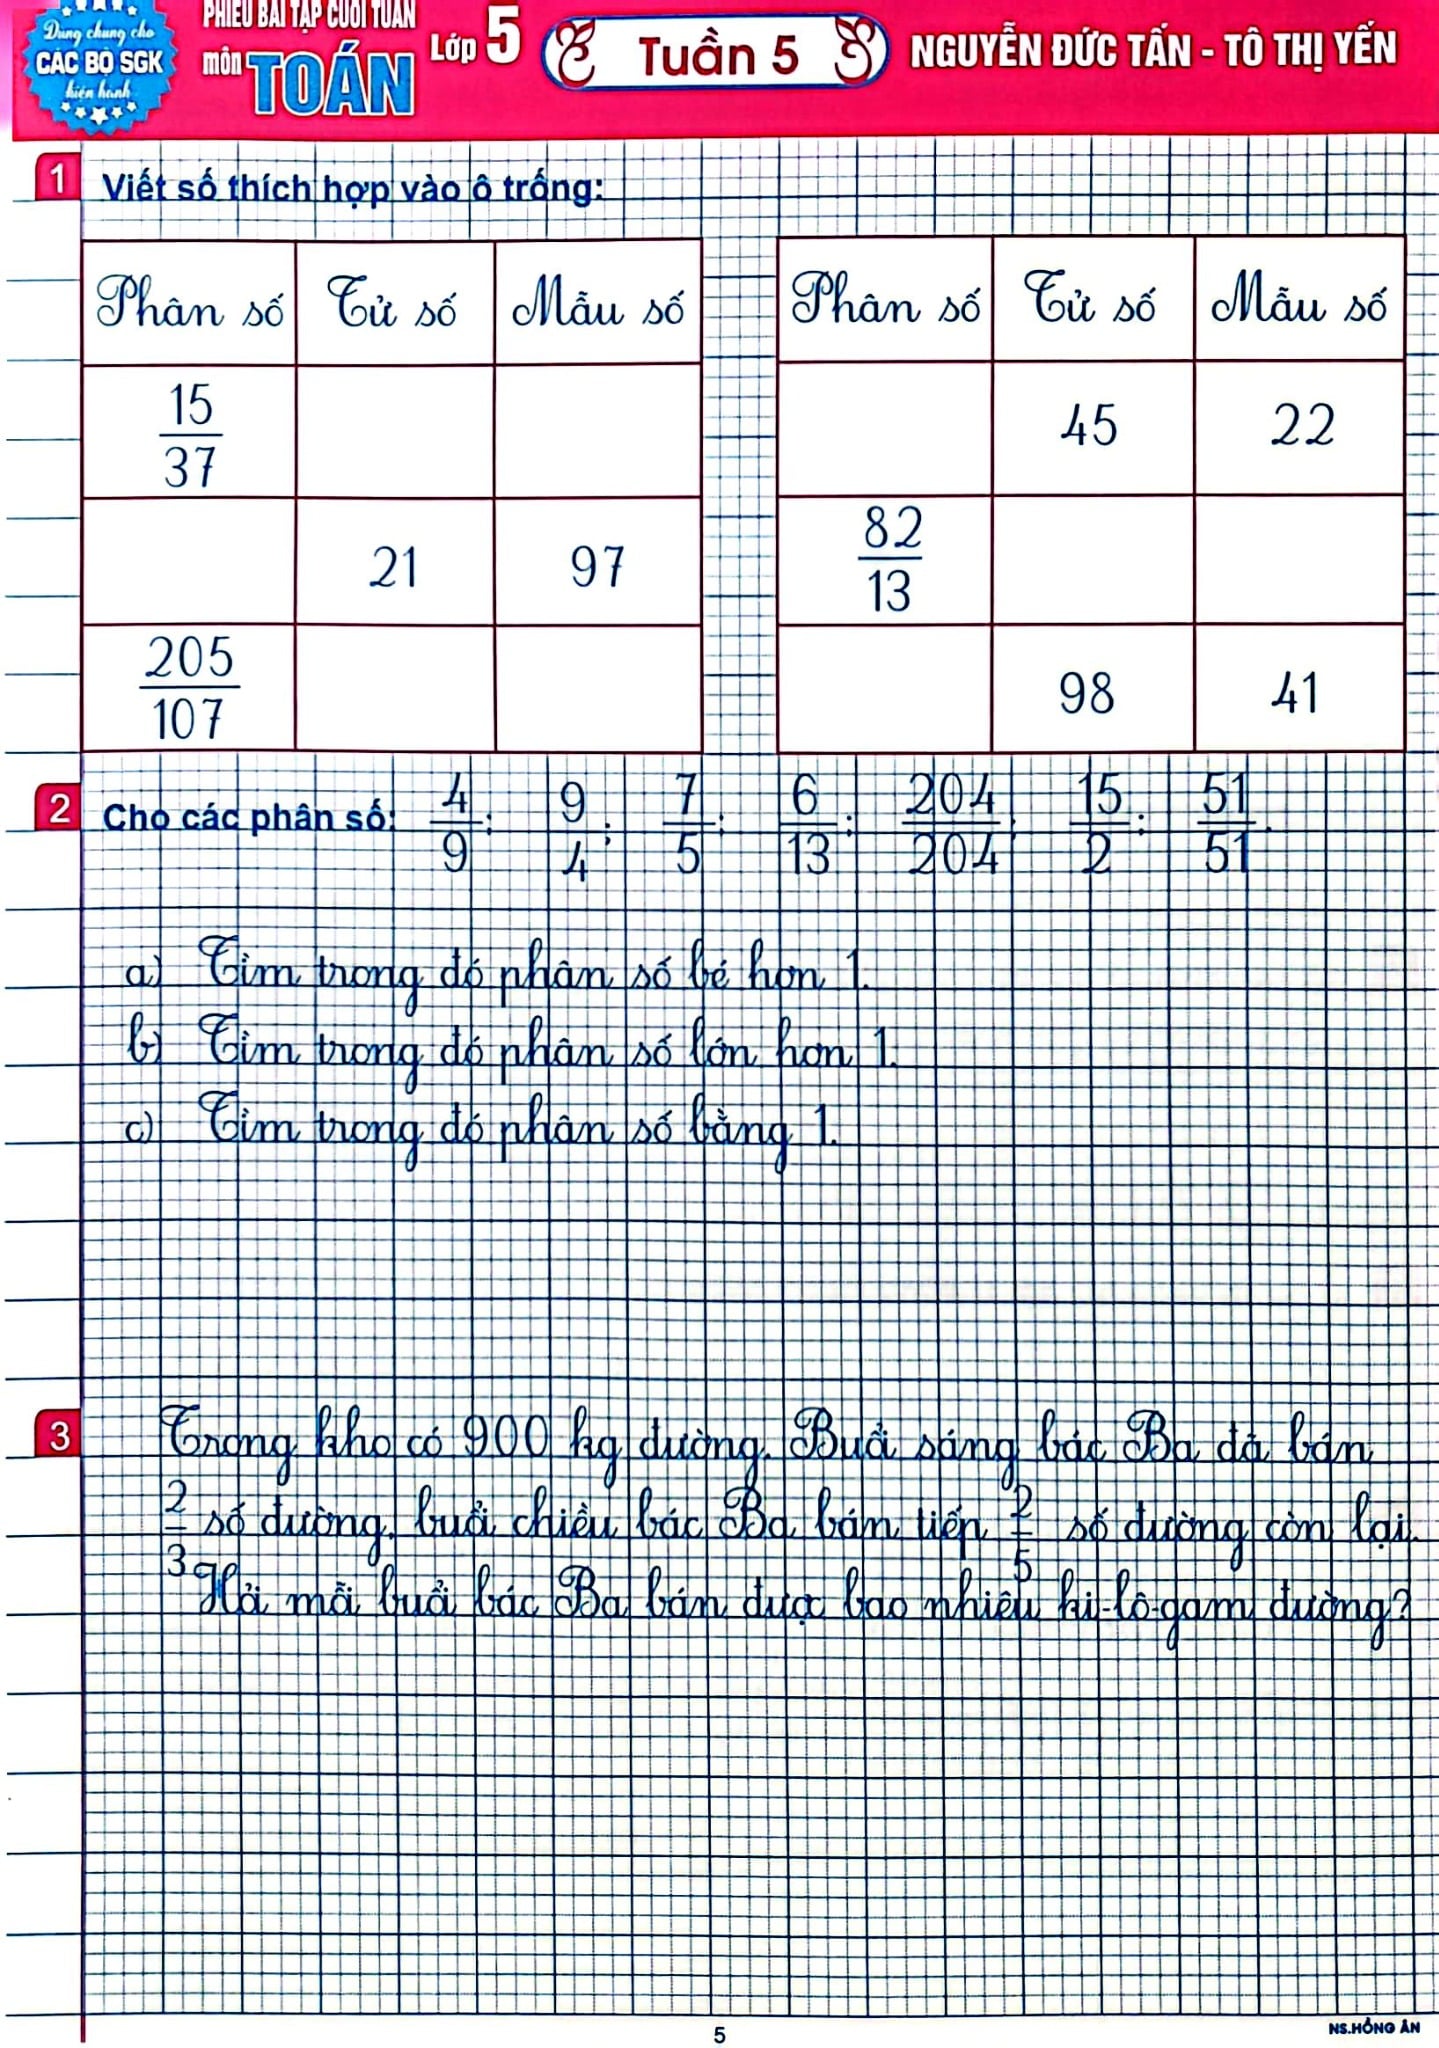 Dùng chung cho
CÁC BỘ SGK
hiện hành
PHIẾU BÀI TẬP CUỐI TUẦN
môn TOÁN
Lớp 5
Tuần 5
NGUYỄN ĐỨC TẤN - TÔ THỊ YẾN
1 Viết số thích hợp vào ô trống:
Phân số Tử số Mẫu số
15/37
21 97
205/107
Phân số Tử số Mẫu số
45 22
82/13
98 41
2 Cho các phân số: 4/9; 9/4; 7/5; 6/13; 204/204; 15/2; 51/51.
a) Tìm trong đó phân số bé hơn 1.
b) Tìm trong đó phân số lớn hơn 1.
c) Tìm trong đó phân số bằng 1.
3 Trong kho có 900 kg đường. Buổi sáng bác Ba đã bán
2/3 số đường, buổi chiều bác Ba bán tiếp 2/5 số đường còn lại.
Hỏi mỗi buổi bác Ba bán được bao nhiêu ki-lô-gam đường?
5
NS.HỒNG ÂN